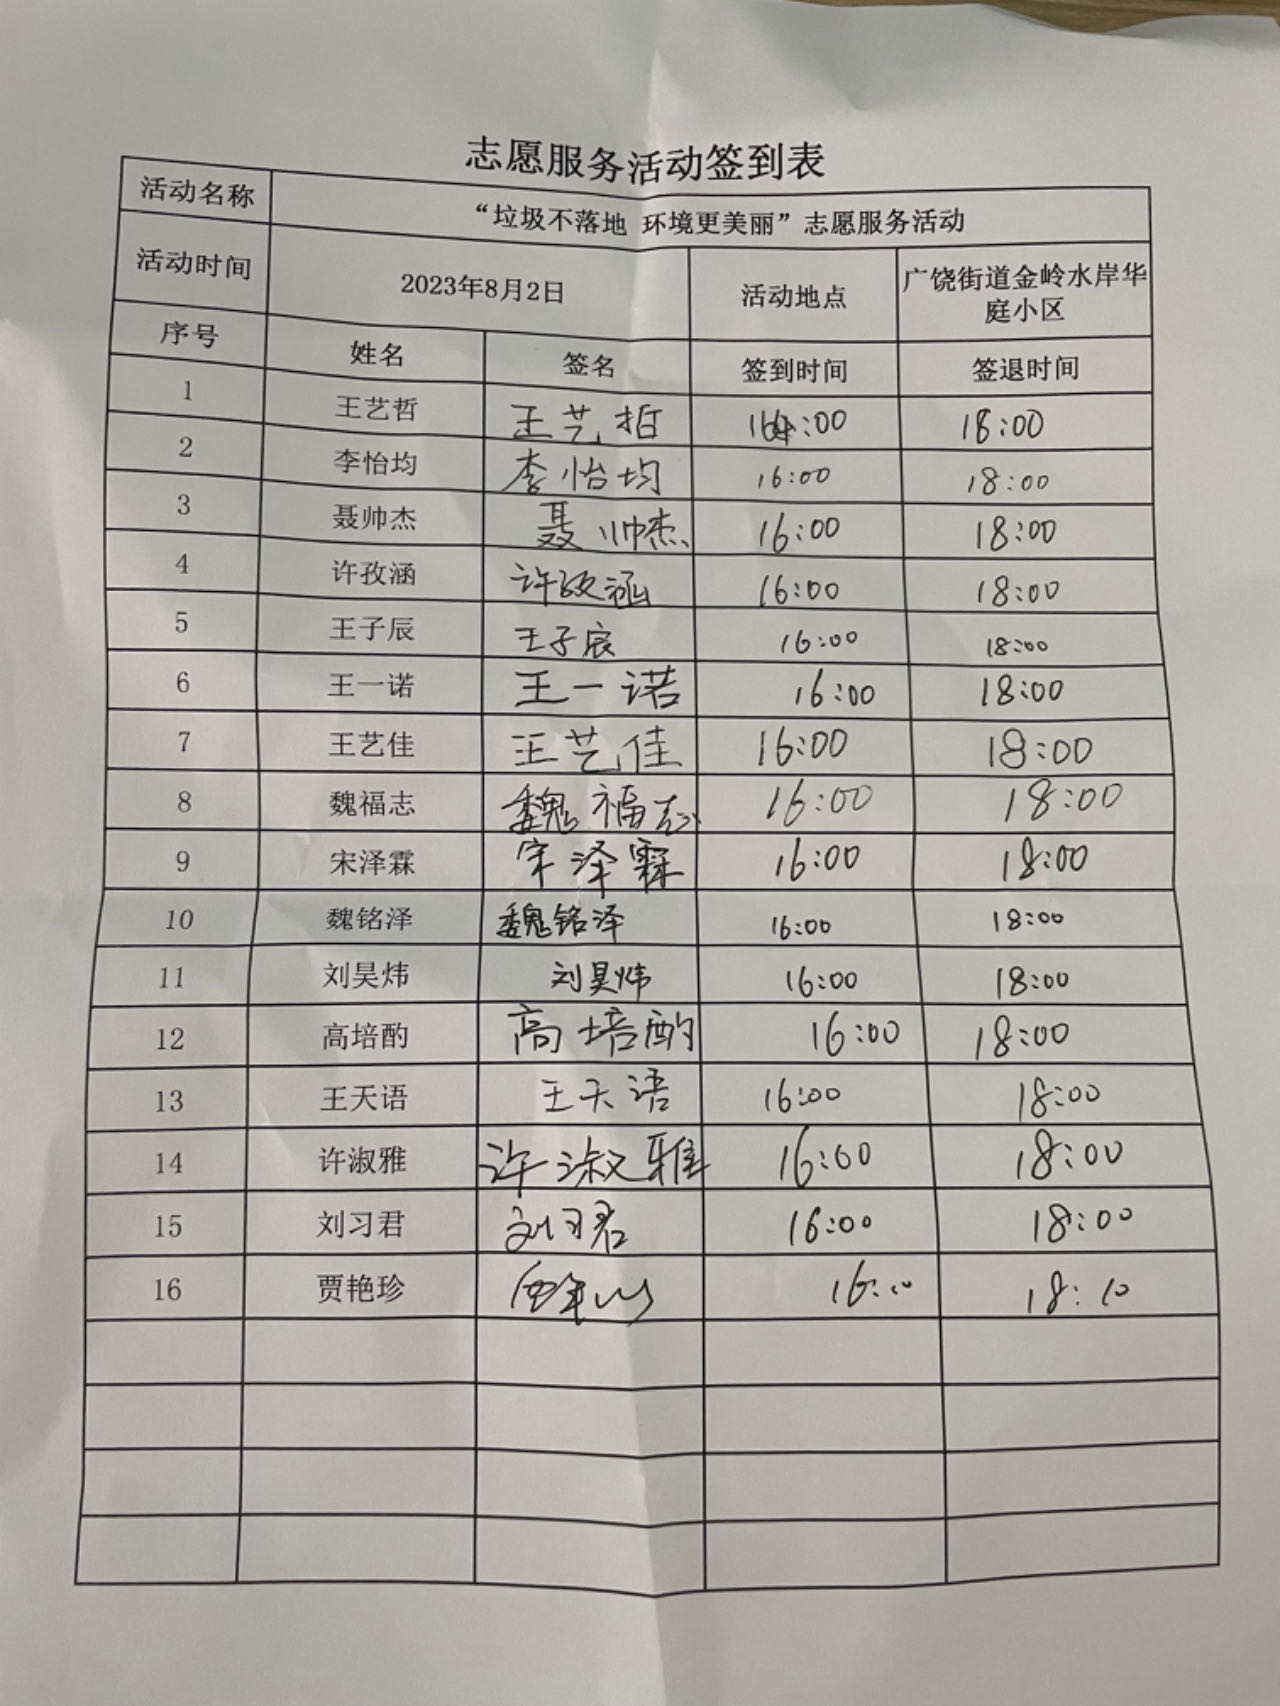 志愿服务活动签到表
活动名称 “垃圾不落地 环境更美丽”志愿服务活动
活动时间 2023年8月2日 活动地点 广饶街道金岭水岸华庭小区
序号 姓名 签名 签到时间 签退时间
1 王艺哲 王艺哲 16:00 18:00
2 李怡均 李怡均 16:00 18:00
3 聂帅杰 聂帅杰 16:00 18:00
4 许孜涵 许孜涵 16:00 18:00
5 王子辰 王子宸 16:00 18:00
6 王一诺 王一诺 16:00 18:00
7 王艺佳 王艺佳 16:00 18:00
8 魏福志 魏福志 16:00 18:00
9 宋泽霖 宋泽霖 16:00 18:00
10 魏铭泽 魏铭泽 16:00 18:00
11 刘昊炜 刘昊炜 16:00 18:00
12 高培酌 高培酌 16:00 18:00
13 王天语 王天语 16:00 18:00
14 许淑雅 许淑雅 16:00 18:00
15 刘习君 刘习君 16:00 18:00
16 贾艳珍 18:10